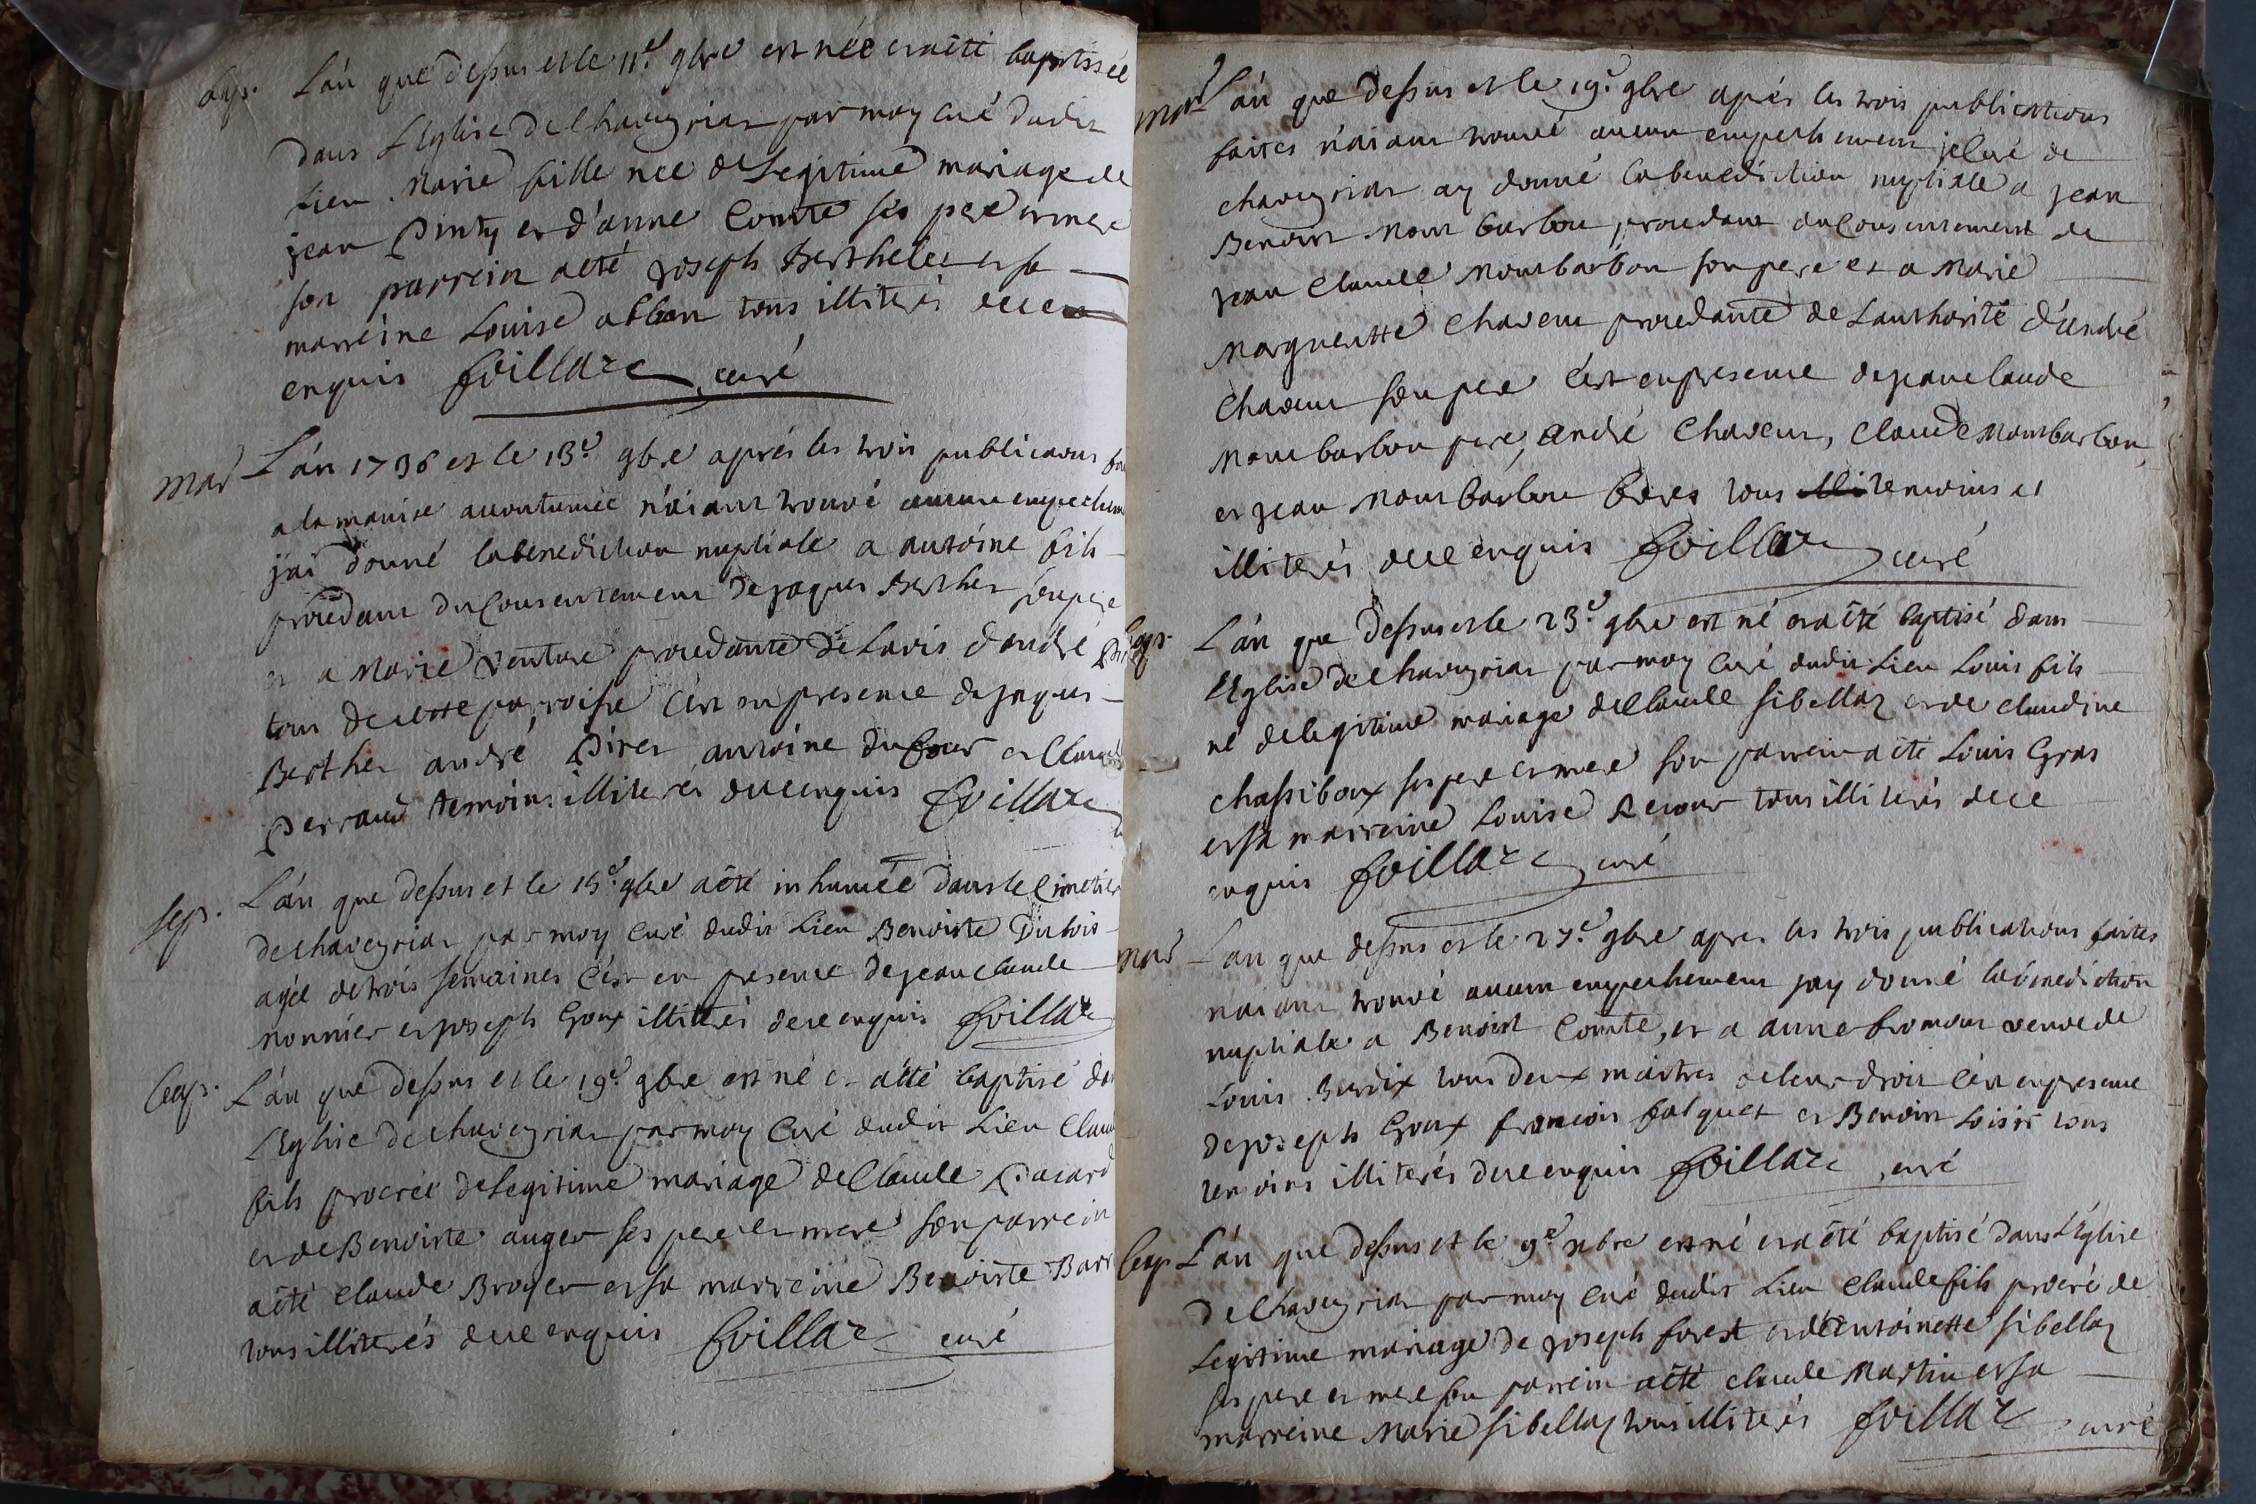 bap. L'án que dessus et le 11e 9bre est née et a été baptisée
dans L'Eglise de Chaveyriat par moy curé dudit
Lieu Marie fille née de Legitime mariage de
jean Pinty et d'anne Comte ses pere et mere
son parrein a eté joseph Berthelet et sa
marreine Louise abban tous illiterés de ce
enquis foillaz curé
mar L'án 1736 et le 13e 9bre aprés les trois publications
a la maniere accoutumée n'aiant trouvé aucun empechem
j'ai donné la benediction nuptiale a antoine fils
procedant du Consentement de jaques Berthet son pere
et a Marie venture procedante de L'avis d'andré
tous de cette parroisse c'est en presence de jaques
Berthet andré Piret antoine dufour et Claude
Perraud temoins illiterés de ce enquis foillaz
sep. L'án que dessus et le 15e 9bre a été inhumée dans le Cimetier
de chaveyriat par moy Curé dudit Lieu Benoiste Dubois
agée de trois semaines c'est en presence de jean claude
Monnier et joseph Goux illiterés de ce enquis foillaz
bap. L'án que dessus et le 19e 9bre est né et a été baptisé
L'Eglise de chaveyriat par moy Curé dudit Lieu
fils procréé de Legitime mariage de Claude Pacard
et de Benoiste auger ses pere et mere son parrein
a été Claude Broyer et sa marreine Benoiste
tous illiterés de ce enquis foillaz curé
mar L'án que dessus et le 19e 9bre aprés les trois publications
faites n'aiant trouvé aucun empechement je Curé de
chaveyriat ay donné la benediction nuptiale a jean
Benoist Montbarbon, procedant du Consentement de
jean Claude Montbarbon son pere et a Marie
Margueritte Chaveur procedante de L'authorité d'andré
Chaveur son pere c'est en presence de jean claude
Montbarbon pere, andré Chaveur, Claude Montbarbon,
et jean Montbarbon freres tous temoins et
illiterés de ce enquis foillaz curé
bap. L'án que dessus et le 23e 9bre est né et a été baptisé dans
L'Eglise de Chaveyriat par moy Curé dudit Lieu Louis fils
né de legitime mariage de Claude sibellaz et de claudine
chassiboux ses pere et mere son parrein a été Louis Gras
et sa marreine Louise Recour tous illiterés de ce
enquis foillaz curé
mar L'an que dessus et le 27e 9bre apres les trois publications faites
n'aiant trouvé aucun empechement jay donné la benediction
nuptiale a Benoist Comte, et a anne fromour veuve de
Louis Burdix tous deux maitres de leur droit c'est en presence
de joseph Goux francois falquet et Benoist Loisir tous
temoins illiterés de ce enquis foillaz curé
bap. L'án que dessus et le 9e xbre est né et a été baptisé dans L'Eglise
de Chaveyriat par moy Curé dudit Lieu Claude fils procréé de
Legitime mariage de joseph forest et d'Antoinette sibellaz
ses pere et mere son parrein a été Claude Martin et sa
marreine Marie sibellaz tous illiterés foillaz curé